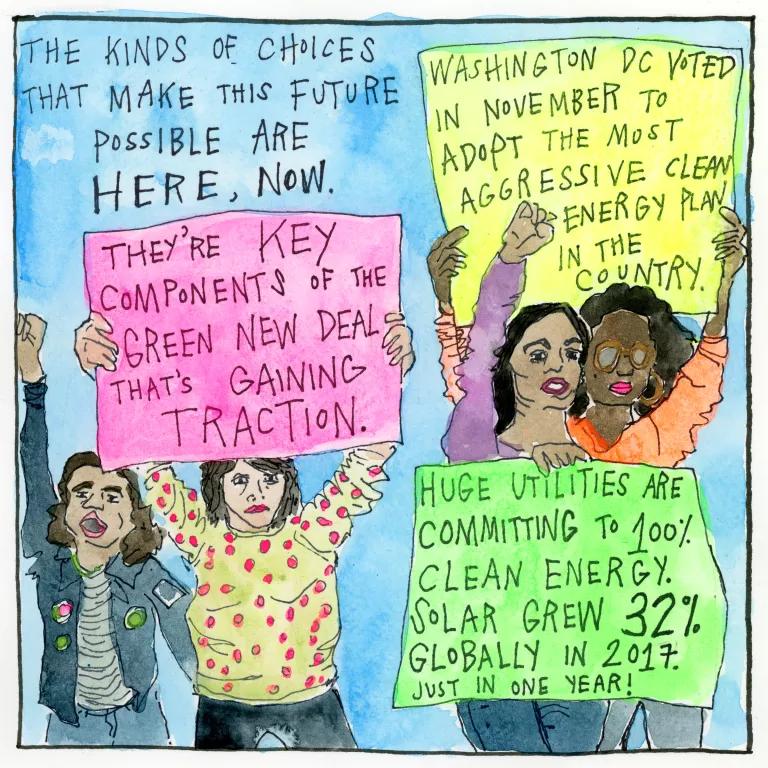 THE KINDS OF CHOICES
THAT MAKE THIS FUTURE
POSSIBLE ARE
HERE, NOW.
THEY'RE KEY
COMPONENTS OF THE
GREEN NEW DEAL
THAT'S GAINING
TRACTION.
WASHINGTON DC VOTED
IN NOVEMBER TO
ADOPT THE MOST
AGGRESSIVE CLEAN
ENERGY PLAN
IN THE
COUNTRY.
HUGE UTILITIES ARE
COMMITTING TO 100%
CLEAN ENERGY.
SOLAR GREW 32%
GLOBALLY IN 2017.
JUST IN ONE YEAR!